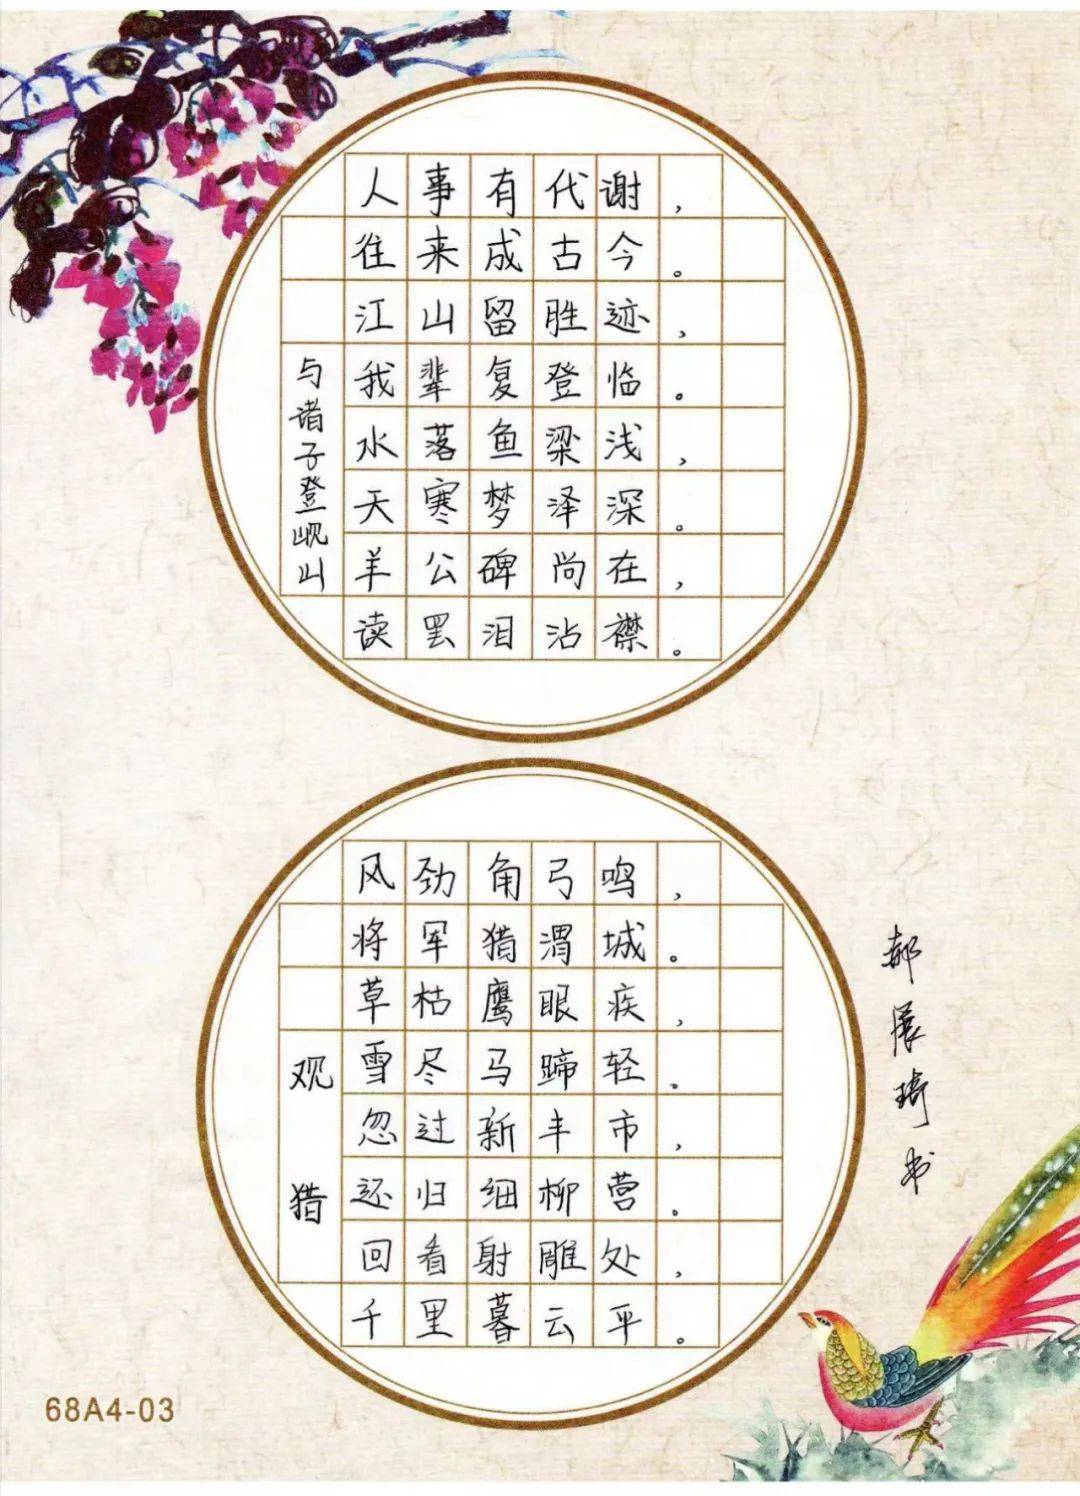 与诸子登岘山
人事有代谢，
往来成古今。
江山留胜迹，
我辈复登临。
水落鱼梁浅，
天寒梦泽深。
羊公碑尚在，
读罢泪沾襟。
观猎
风劲角弓鸣，
将军猎渭城。
草枯鹰眼疾，
雪尽马蹄轻。
忽过新丰市，
还归细柳营。
回看射雕处，
千里暮云平。
郝展琦书
68A4-03